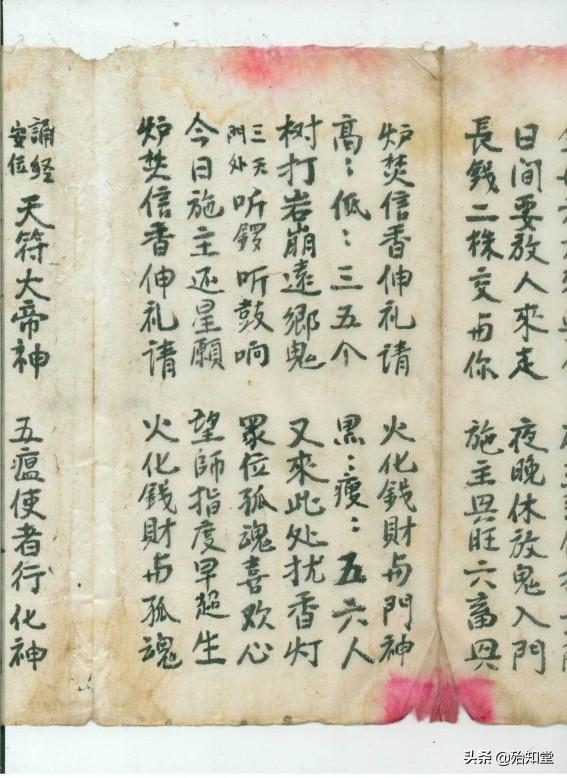 日間要放人來走 夜晚休放鬼入門
長錢二株交与你 施主興旺六畜興
炉焚信香伸礼請 火化錢財与門神
高〻低〻三五个 黑〻瘦〻五六人
树打岩崩遠鄉鬼 又來此处扰香灯
三天門外听鑼听鼓响 眾位孤魂喜欢心
今日施主还星願 望師指度早超生
炉焚信香伸礼請 火化錢財与孤魂
誦経安位 天符大帝神 五瘟使者行化神
头条 @殆知堂